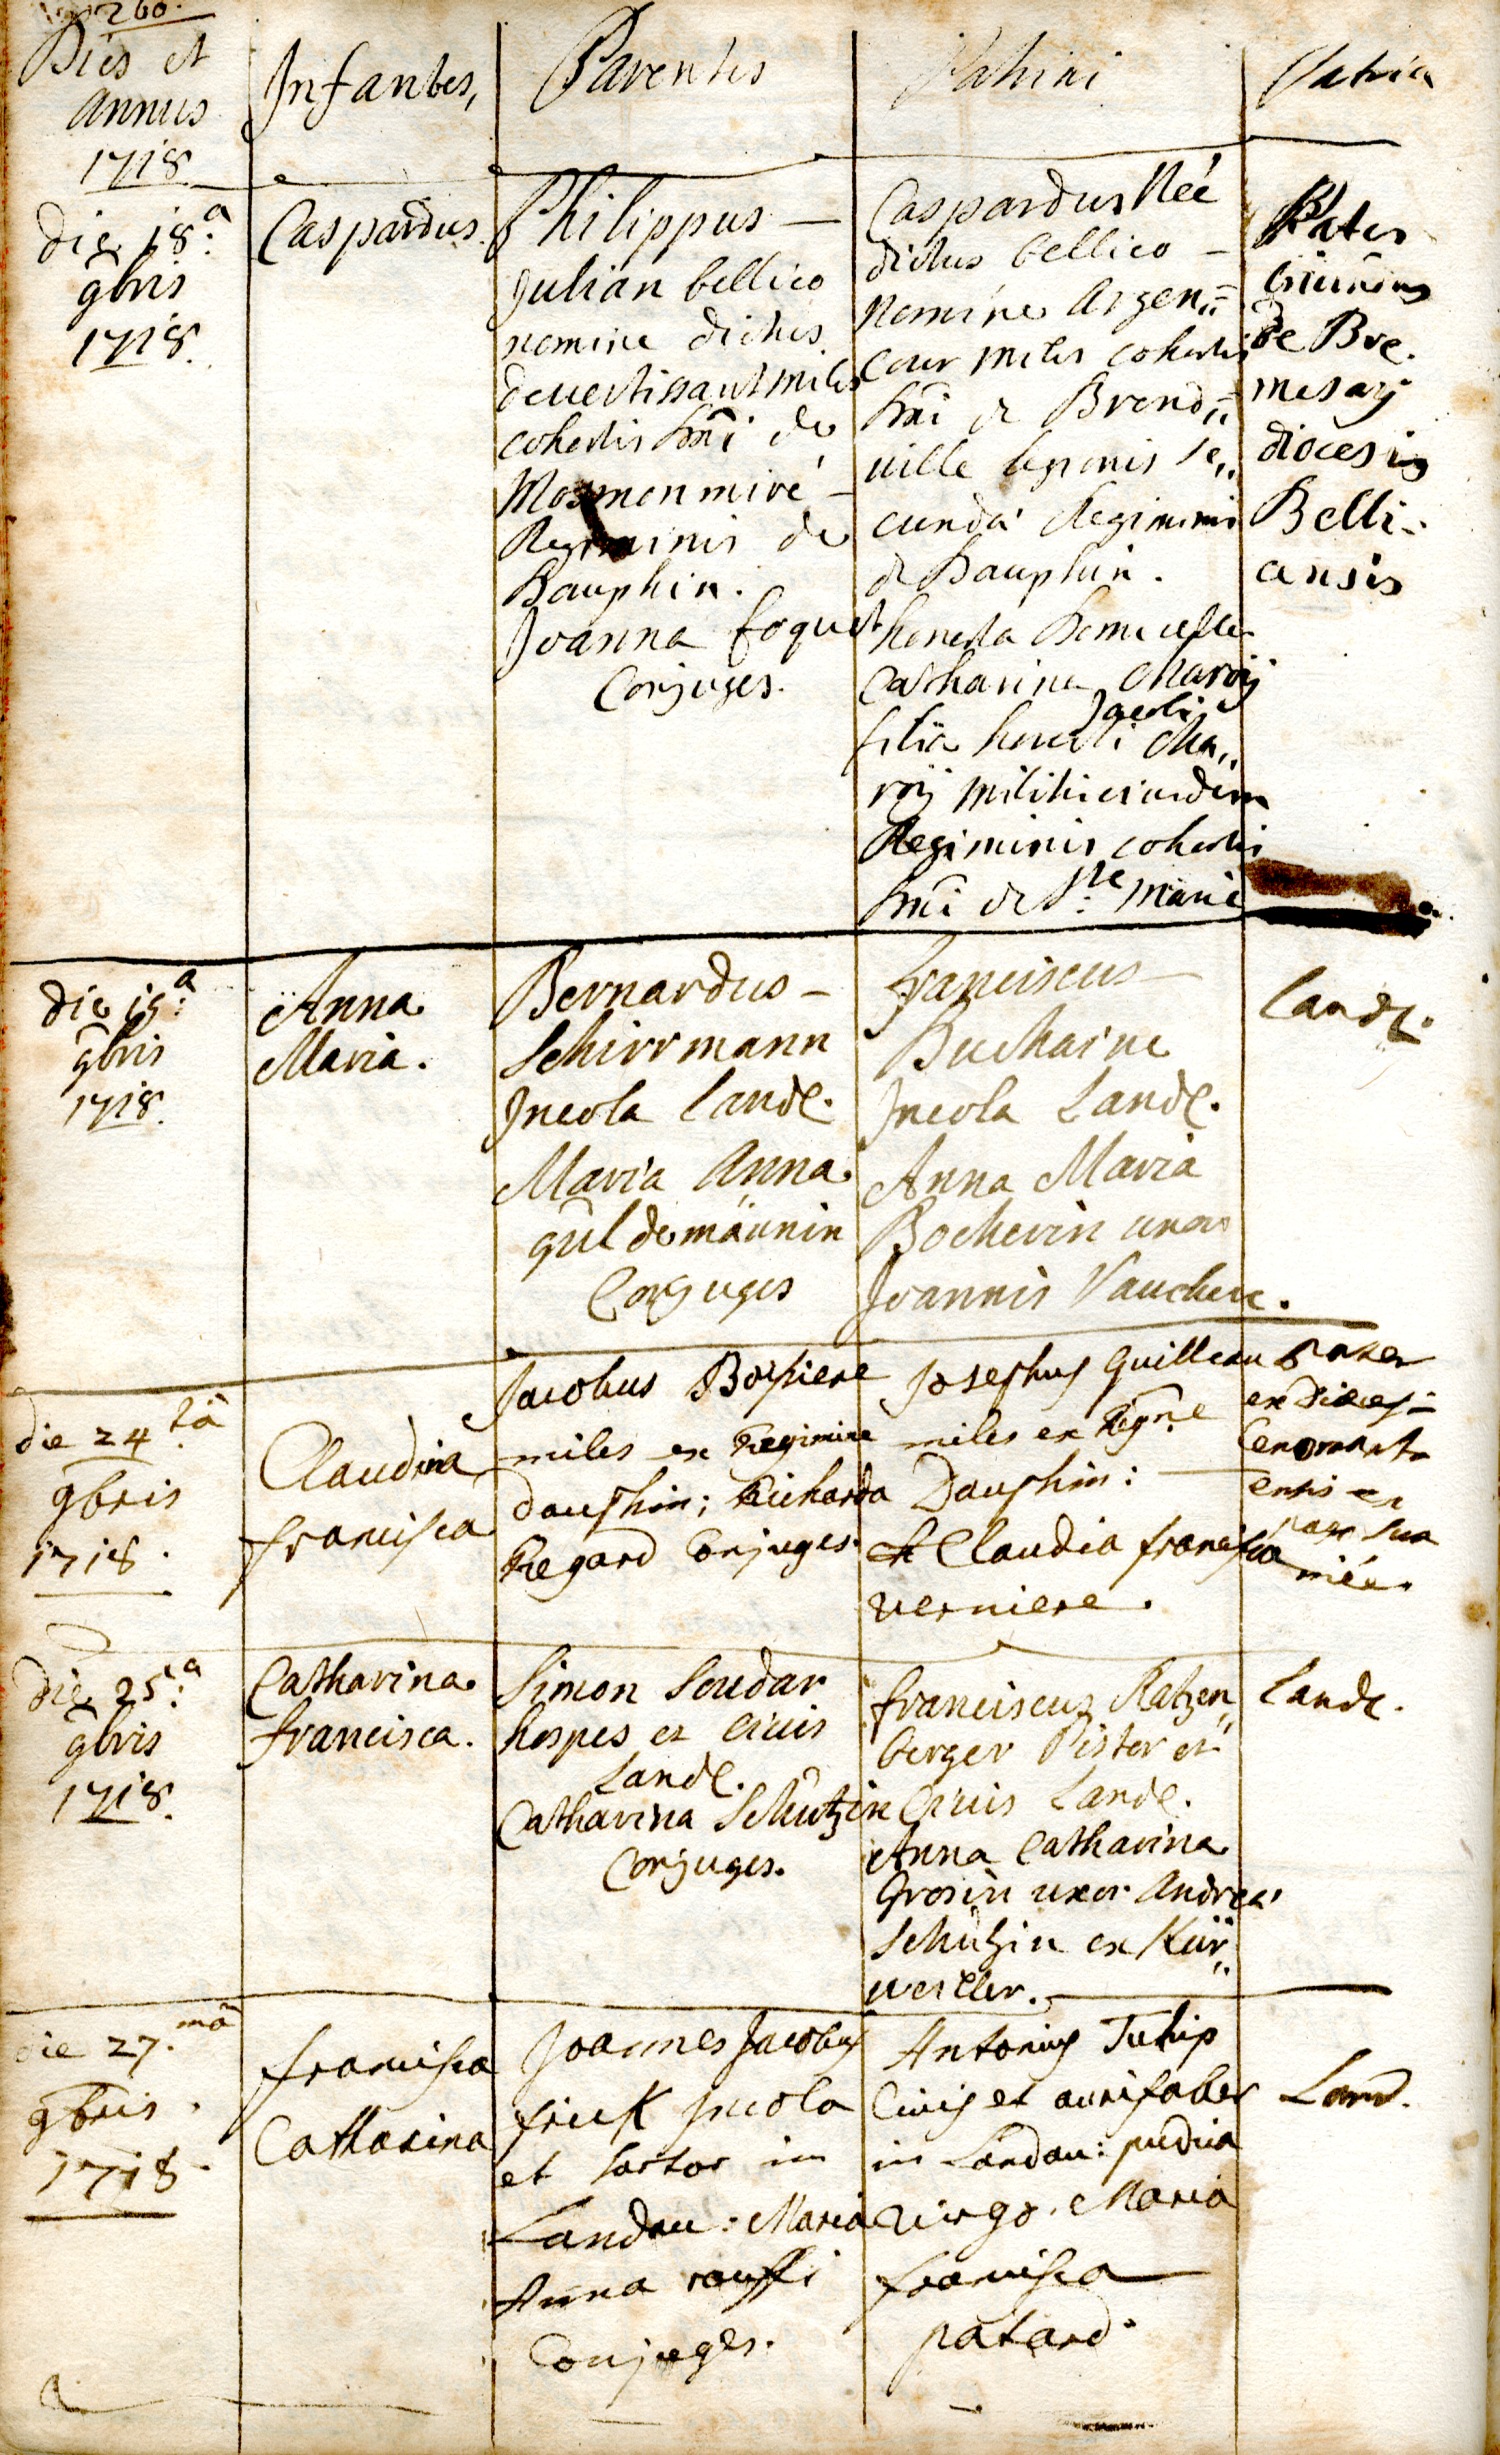 260.
Dies et
Annus
1718
Infantes,
Parentes
Patrini
Patria
die 18.a
9bris
1718.
Caspardus.
Philippus —
Julian bellico
nomine dictus
devertissant miles
cohortis Dni de
Mosmenmiré —
Regiminis de
Dauphin.
Joanna Coquet
Conjuges.
Caspardus Neé
dictus bellico —
nomine Argen,,
cour miles cohortis
Dni de Brend,,
uille legionis se,,
cunda Regiminis
de Dauphin.
honesta Domicella
Catharina Maroÿ
Jacobi
filia honesti Ma,,
roÿ militis eiusdem
Regiminis cohortis
Dni de Ste: Marie
Pater
de Bre.
mesaÿ
diocesis
Belli-
cansis
die 19.a
9bris
1718.
Anna
Maria.
Bernardus —
Schirrmann
Incola Landę.
Maria Anna
guldemännin
Conjuges
Franciscus —
Ducháine
Incola Landę.
Anna Maria
Bocherin uxor
Joannis Vauchere.
Landę.
die 24.tâ
9bris
1718.
Claudina
francisca
Jacobus Bossiere
miles ex Regimine
dauphin; Richarda
Regard Conjuges.
Josephus Guilleau
miles ex Regne
Dauphin: —
et Claudia francisca
verniere.
Pater
ex diœcesi
Cenomant
ensis et
par sua
niée.
die 25.a
9bris
1718.
Catharina
francisca.
Simon Soudar
hospes et civis
Landę.
Catharina Schützin
Conjuges.
franciscus Katzen,,
berger Pistor et
Civis Landę.
Anna Catharina
Grosin uxor Andreæ
Schützin ex Kür,,
weiller.
Landę.
die 27.mâ
9bris.
1718.
francisca
Catharina
Joannes Jacobus
frick incola
et sartor in
Landau: Maria
Anna rauffi
Conjuges.
Antonius Tulip
Civis et aurifaber
in Landau: pudica
virgo. Maria
francisca
patard.
Land.